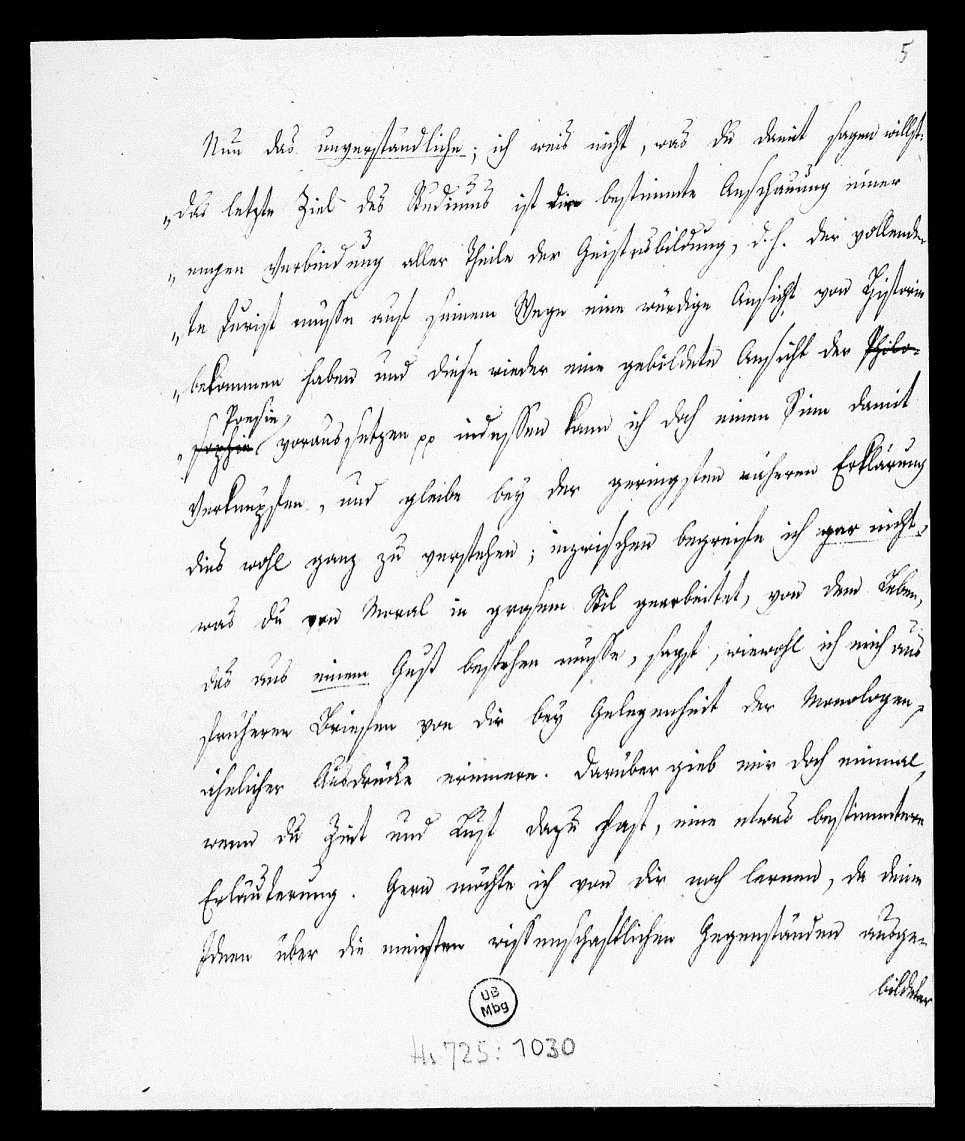 5
Nun das unverständliche; ich weis nicht, was du damit sagen willst:
„das letzte Ziel des Studiums ist die bestimmte Anschauung einer
„engen Verbindung aller Theile der Geistesbildung, d. h. der vollende-
„te Jurist müsse auf seinem Wege eine würdige Ansicht von Historie
„bekommen haben und diese wieder eine gebildete Ansicht der Philo-
Poesie
„sophie voraussetzen pp indessen kann ich doch einen Sinn damit
verknüpfen, und gleube bey der geringsten näheren Erklärung
dies wohl ganz zu verstehen; inzwischen begreife ich gar nicht,
was du von Moral in grosem Stil gearbeitet, von dem Leben,
das aus einem Guß bestehen müsse, sagst, wiewohl ich mich aus
früheren Briefen von dir bey Gelegenheit der Monologen,
ähnlicher Ausdrücke erinnere. Darüber gieb mir doch einmal,
wenn du Zeit und Lust dazu hast, eine etwas bestimmtere
Erläuterung. Gern möchte ich von dir noch lernen, da deine
Ideen über die meisten wissenschaftlichen Gegenständen ausge-
bildeter
UB
Mbg
Hs 725: 1030